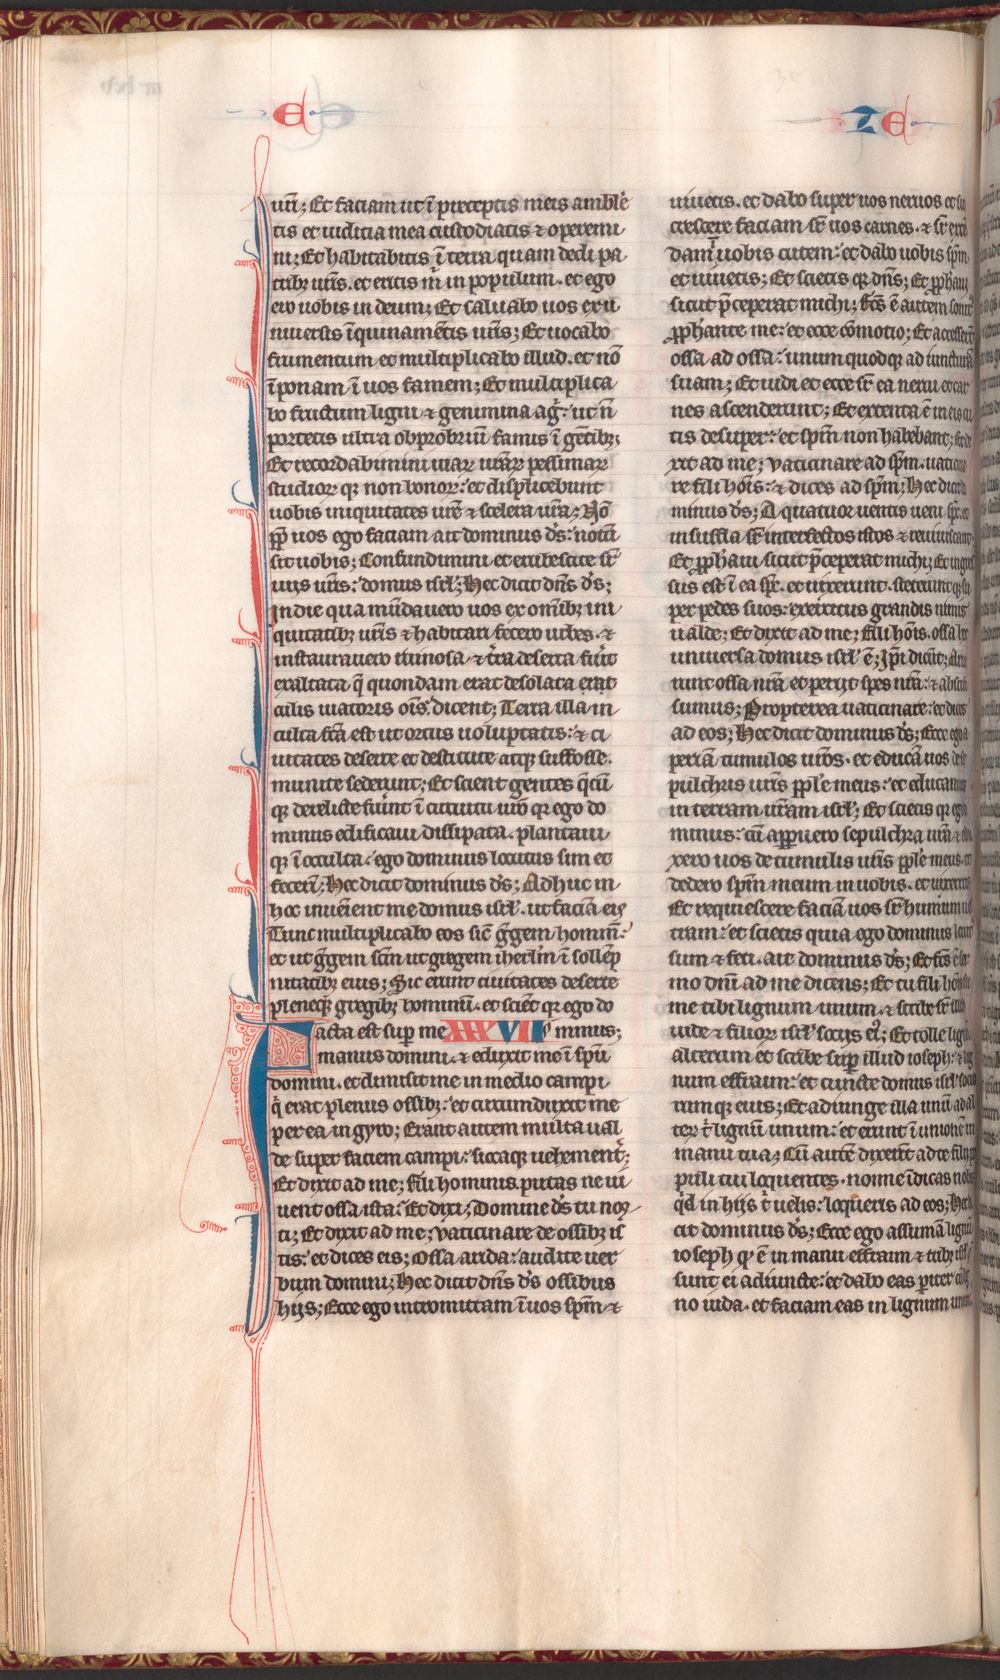 E
ZE
uri; Et faciam ut ī preceptis meis amble
tis et iudicia mea custodiatis & operemi
ni; Et habitabitis ī terra quam dedi pa
tribꝫ uris. et eritis m̄ in populum. et ego
ero uobis in deum; Et saluabo uos ex u
niuersis īquinamētis uris; Et uocabo
frumentum et multiplicabo illud. et nō
īponam ī uos famem; Et multiplica
bo fructum ligni & genimina agͥ: ut n̄
portetis ultra obprobriū famis ī gētibꝫ;
Et recordabimini uiaꝝ uraꝝ pessimaꝝ
studioꝝ qꝫ non bonoꝝ: et displicebunt
uobis iniquitates ure & scelera ura; Nō
pp̄ uos ego faciam ait dominus ds: notū
sit uobis; Confundimini et erubescite sr̄
uiis uris: domus isrl; Hec dicit dn̄s ds;
In die qua mūdauero uos ex omībꝫ ini
quitatibꝫ uris & habitari fecero urbes. &
instaurauero ruinosa. & tr̄a deserta fuīt
exaltata q̄ quondam erat desolata erat
culis uiatoris oīs. dicent; Terra illa in
culta fc̄a est ut ortus uoluptatis: & ci
uitates deserte et destitute atqꝫ suffosse.
munite sederunt; Et scient gentes q̄cū
qꝫ derelicte fuīnt ī circuitu uro qꝛ ego do
minus edificaui dissipata. plantaui
qꝫ ī culta. ego dominus locutus sim et
fecerī; Hec dicit dominus ds; Adhuc in
hoc inuenient me domus isrl. ut faciā eis
Tunc multiplicabo eos sic̄ gͤgem hominū:
et ut gͤgem sc̄m ut gregem ihrlm ī sollēp
nitatibꝫ eius; Sic erunt ciuitates deserte
pleneqꝫ gregibꝫ hominū. et sciēt qꝛ ego do
Facta est sup me XXXVII minus;
manus domini. & eduxit me ī spū
domini. et dimisit me in medio campi
q̄ erat plenus ossibꝫ: et circumduxit me
per ea in gyro; Erant autem multa ual
de super faciem campi: siccaqꝫ uehementͬ;
Et dixit ad me; fili hominis putas ne ui
uent ossa ista: Et dixi; Domine ds tu nos
ti; Et dixit ad me; Vaticinare de ossibꝫ is
tis: et dices eis; Ossa arida: audite uer
bum domini; Hec dicit dn̄s ds ossibus
hijs; Ecce ego intromittam ī uos sp̄m. &
uiuetis. et dabo super uos neruos et su
crescere faciam sr̄ uos carnes. & sr̄
dam uobis cutem: et dabo uobis sp̄m
et uiuetis; Et scietis qꝛ dn̄s; Et pphaui
sicut p̄ceperat michi; fc̄s ē autem sonit
pphante me: et ecce cōmotio; Et accesser̄t
ossa ad ossa: unum quodqꝫ ad iunctura
suam; Et uidi et ecce sr̄ ea nerui et car
nes ascenderunt; Et extenta ē in eis cu
tis desuper: et sp̄m non habebant; Et di
xit ad me; Vaticinare ad sp̄m. uaticina
re fili hoīs: & dices ad sp̄m; Hec dicit do
minus ds; A quatuor uentis ueni
insuffla sr̄ interfectos istos & reuiuiscant
Et pphaui sicut p̄ceperat michi; Et ingres
sus est ī ea sp̄c. et uixerunt. steteruntqꝫ su
per pedes suos: exercitus grandis nimis
ualde; Et dixit ad me; fili hoīs. ossa hec
uniuersa domus isrl ē; Ip̄i dicūt; aru
runt ossa nr̄a et perijt spes nr̄a: & abscisi
sumus; Propterea uaticinare: et dices
ad eos; Hec dicit dominus ds; Ecce ego a
periā tumulos uros. et educā uos de se
pulchris uris pple meus: et educam
in terram uram isrl; Et scietis qꝛ ego
minus: cū apperuero sepulchra ura & edu
xero uos de tumulis uris pple meus. et
dedero sp̄m meum in uobis. et uixeritis
Et requiescere faciā uos sr̄ humum ues
tram: et scietis quia ego dominus locut
sum & feci. ait dominus ds; Et fc̄s ē ser
mo dn̄i ad me dicens; Et tu fili hoīs su
me tibi lignum unum. & scribe sr̄ illud
iude & filioꝝ isrl sociis eꝰ; Et tolle lignū
alterum et scribe sup illud ioseph: & lig
num effraim: et cuncte domus isrl socio
rumqꝫ eius; Et adiunge illa unū ad al
terͬ ī lignū unum: et erunt ī unione in
manu tua; Cū autē dixerīt ad te filij
puli tui loquentes. nonne īdicas nobis
qd in hijs tͥ uelis: loqueris ad eos; Hec di
cit dominus ds; Ecce ego assumā lignū
ioseph qd ē in manu effraim & tribꝫ isrl
sunt ei adiuncte: et dabo eas pariter cū lig
no iuda. et faciam eas in lignum unum